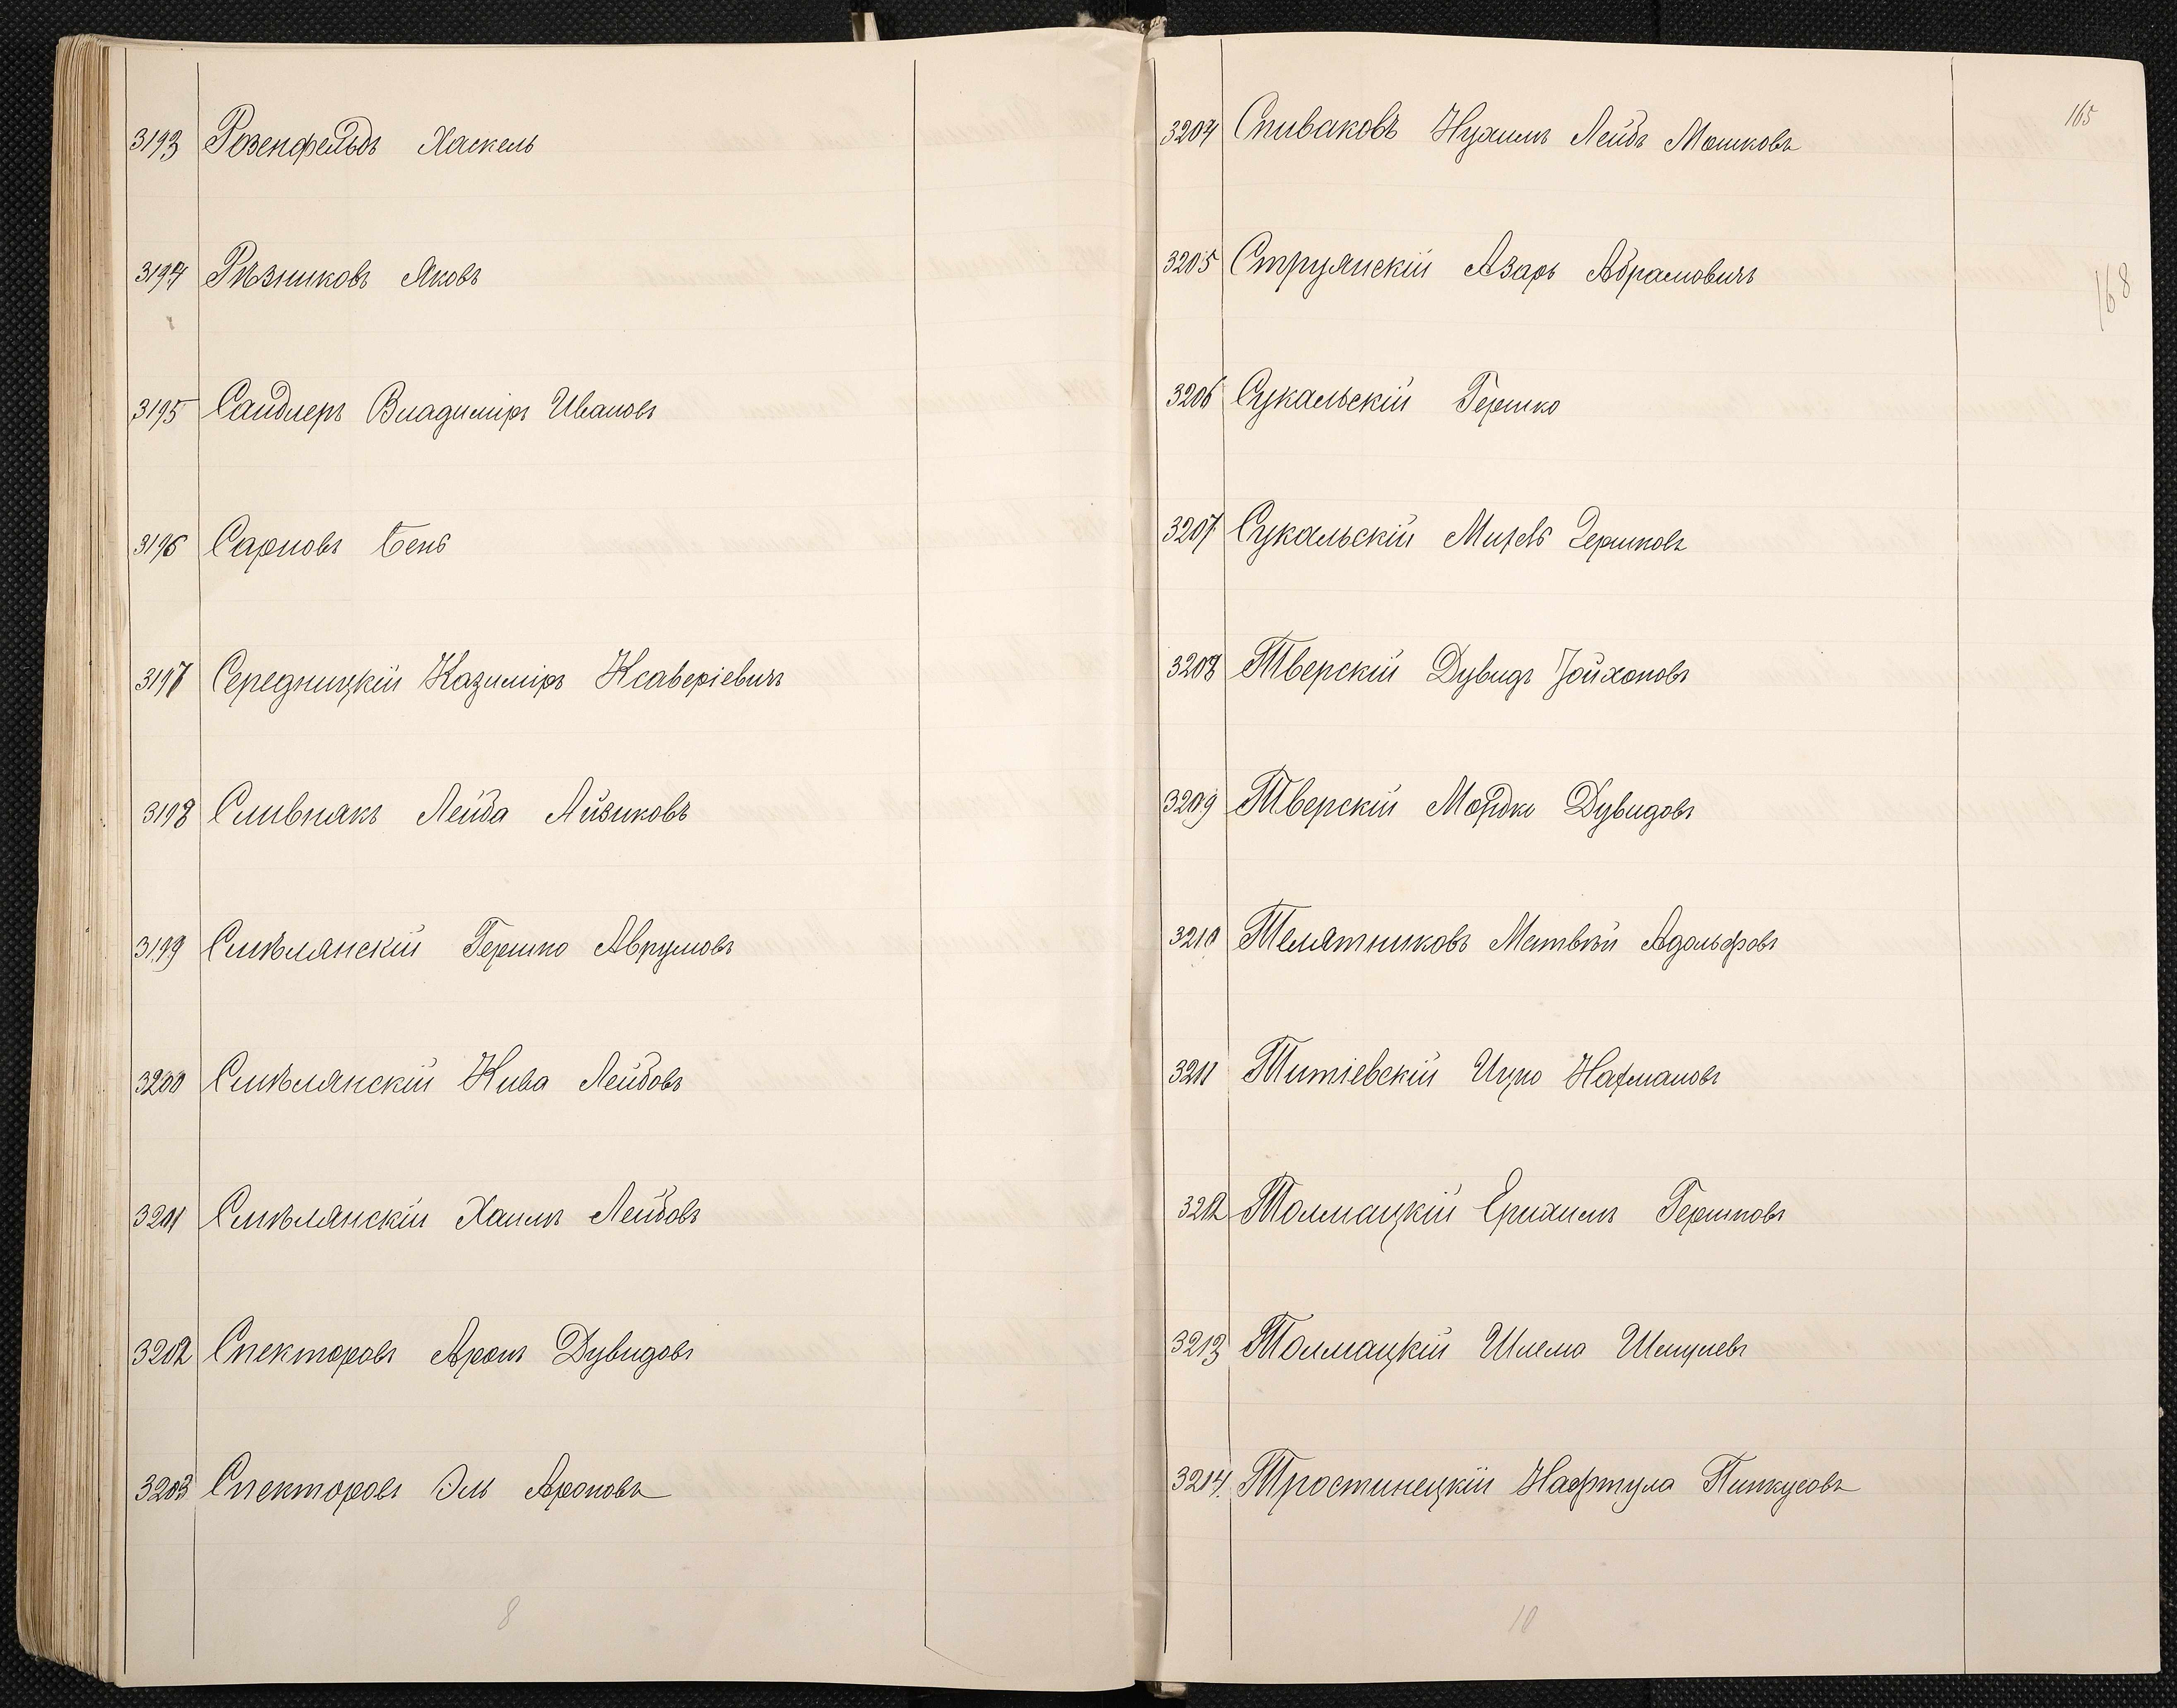 3193 Розенфельдъ Хаскель
3194 Рѣзниковъ Яковъ
3195 Сандлеръ Владиміръ Ивановъ
3196 Сарновъ Бень
3197 Середницкій Казиміръ Ксаверіевичъ
3198 Сливнякъ Лейба Айзиковъ
3199 Смѣлянскій Гершко Аврумовъ
3200 Смѣлянскій Кива Лейбовъ
3201 Смѣлянскій Хаимъ Лейбовъ
3202 Спекторовъ Аронъ Дувидовъ
3203 Спекторовъ Эль Ароновъ
8
165
168
3204 Спиваковъ Нухимъ Лейбъ Мошковъ
3205 Струянскій Азаръ Абрамовичъ
3206 Сукальскій Гершко
3207 Сукальскій Михель Гершковъ
3208 Тверскій Дувидъ Іойхоновъ
3209 Тверскій Мордко Дувидовъ
3210 Телятниковъ Матвѣй Адольфовъ
3211 Титіевскій Ицко Нахмановъ
3212 Толмацкій Ерихимъ Гершковъ
3213 Толмацкій Шлема Шмулевъ
3214. Тростинецкій Нафтула Пинкусовъ
10